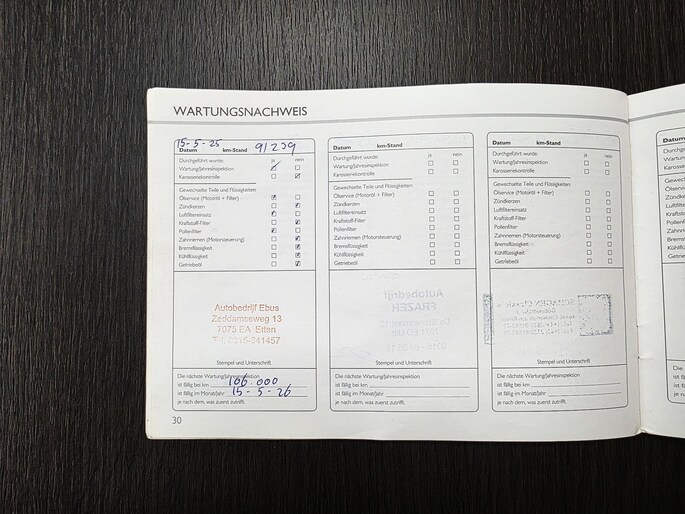 WARTUNGSNACHWEIS
15-5-25 91239
Datum km-Stand
Durchgeführt wurde: ja nein
Wartung/Jahresinspektion
Karosseriekontrolle
Gewechselte Teile und Flüssigkeiten
Ölservice (Motoröl + Filter)
Zündkerzen
Luftfiltereinsatz
Kraftstoff-Filter
Pollenfilter
Zahnriemen (Motorsteuerung)
Bremsflüssigkeit
Kühlflüssigkeit
Getriebeöl
Autobedrijf Ebus
Zeddamseweg 13
7075 EA Etten
Tel. 0315-341457
Stempel und Unterschrift
Die nächste Wartung/Jahresinspektion
ist fällig bei km 106.000
ist fällig im Monat/Jahr 15-5-26
je nach dem, was zuerst zutrifft.
30
Datum km-Stand
Durchgeführt wurde: ja nein
Wartung/Jahresinspektion
Karosseriekontrolle
Gewechselte Teile und Flüssigkeiten
Ölservice (Motoröl + Filter)
Zündkerzen
Luftfiltereinsatz
Kraftstoff-Filter
Pollenfilter
Zahnriemen (Motorsteuerung)
Bremsflüssigkeit
Kühlflüssigkeit
Getriebeöl
Autobedrijf
FRAZER
Stempel und Unterschrift
Die nächste Wartung/Jahresinspektion
ist fällig bei km
ist fällig im Monat/Jahr
je nach dem, was zuerst zutrifft.
Datum km-Stand
Durchgeführt wurde: ja nein
Wartung/Jahresinspektion
Karosseriekontrolle
Gewechselte Teile und Flüssigkeiten
Ölservice (Motoröl + Filter)
Zündkerzen
Luftfiltereinsatz
Kraftstoff-Filter
Pollenfilter
Zahnriemen (Motorsteuerung)
Bremsflüssigkeit
Kühlflüssigkeit
Getriebeöl
Stempel und Unterschrift
Die nächste Wartung/Jahresinspektion
ist fällig bei km
ist fällig im Monat/Jahr
je nach dem, was zuerst zutrifft.